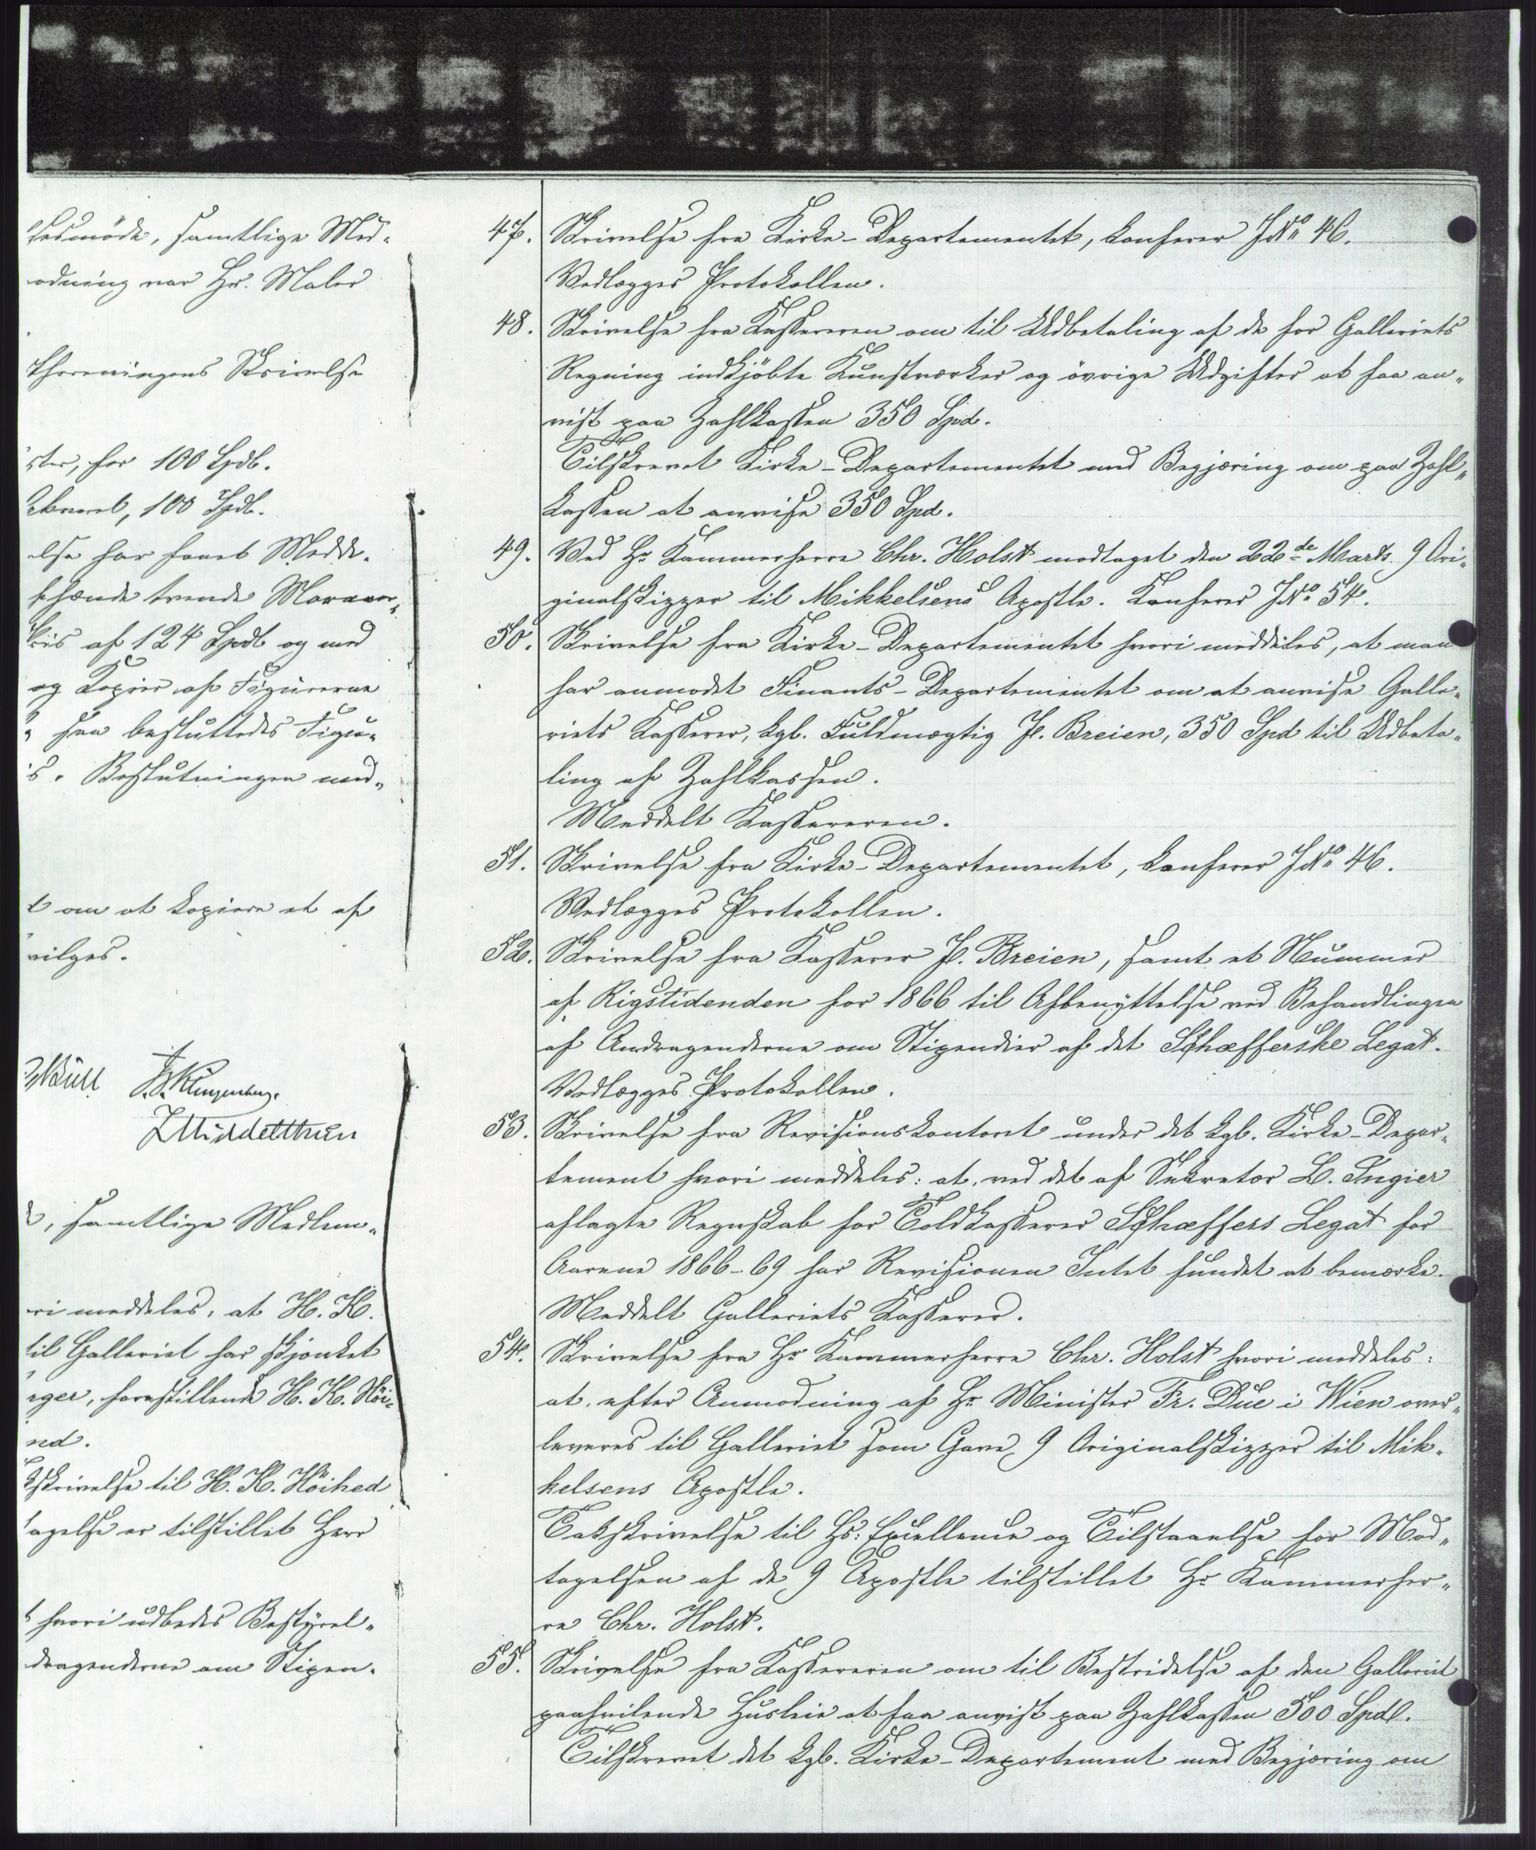 smøde, samtlige Med-
odning var Hr. Maler
thoreningens Skrivelse
ster, for 100 Spdl.
Akvarel, 100 Spdl.
else har faaet Medde-
hænde trende Marmor-
kris af 124 Spdl og med
og Kopier af Figurerne
saa besluttedes Figu-
is. Beslutningen med-
t om at kopiere et af
vilges.
Bull F. Klingenberg.
J Middelthun
, samtlige Medlem-
ri meddeles: at H. K.
til Galleriet har skjænket
rger, forestillende H. K. Höi-
nd.
skrivelse til H. K. Höihed
tagelse er tilstillet Herr
t hvori udbedes Bestyrel-
dragenderne om Stipen-
47. Skrivelse fra Kirke-Departementet, konferer JNo 46.
Vedlægges Protokollen.
48. Skrivelse fra Kassereren om til Udbetaling af de for Galleriets
Regning indkjöbte Kunstværker og övrige Udgifter at faa an-
vist paa Zahlkassen 350 Spd.
Tilskrevet Kirke-Departementet med Begjæring om paa Zahl-
kassen at anvise 350 Spd.
49. Ved Hr Kammerherre Chr. Holst modtaget den 22de Marts 9 Ori-
ginalskizzer til Mikkelsens Apostle. Konferer JNo 54.
50. Skrivelse fra Kirke-Departementet hvori meddeles, at man
har anmodet Finants-Departementet om at anvise Galle-
riets Kasserer, kgl. Fuldmægtig P. Breien, 350 Spd til Udbeta-
ling af Zahlkassen.
Meddelt Kassereren.
51. Skrivelse fra Kirke-Departementet, konferer JNo 46.
Vedlægges Protokollen.
52. Skrivelse fra Kasserer P. Breien, samt et Nummer
af Rigstidenden for 1866 til Afbenyttelse ved Behandlingen
af Andragenderne om Stipendier af det Schæfferske Legat.
Vedlægges Protokollen.
53. Skrivelse fra Revisionskontoret under det kgl. Kirke-Depar-
tement hvori meddeles: at ved det af Sekretær L. Ingier
aflagte Regnskab for Toldkasserer Schæffers Legat for
Aarene 1866-69 har Revisionen Intet fundet at bemærke.
Meddelt Galleriets Kasserer.
54. Skrivelse fra Hr Kammerherre Chr. Holst hvori meddeles:
at efter Anmodning af Hr Minister Fr. Due i Wien over-
leveres til Galleriet som Gave 9 Originalskizzer til Mik-
kelsens Apostle.
Takskrivelse til Hs: Excellence og Tilstaaelse for Mod-
tagelsen af de 9 Apostle tilstillet Hr Kammerher-
re Chr. Holst.
55. Skrivelse fra Kassereren om til Bestridelse af den Galleriet
paahvilende Husleie at faa anvist paa Zahlkassen 500 Spdl.
Tilskrevet det kgl. Kirke-Departement med Begjæring om